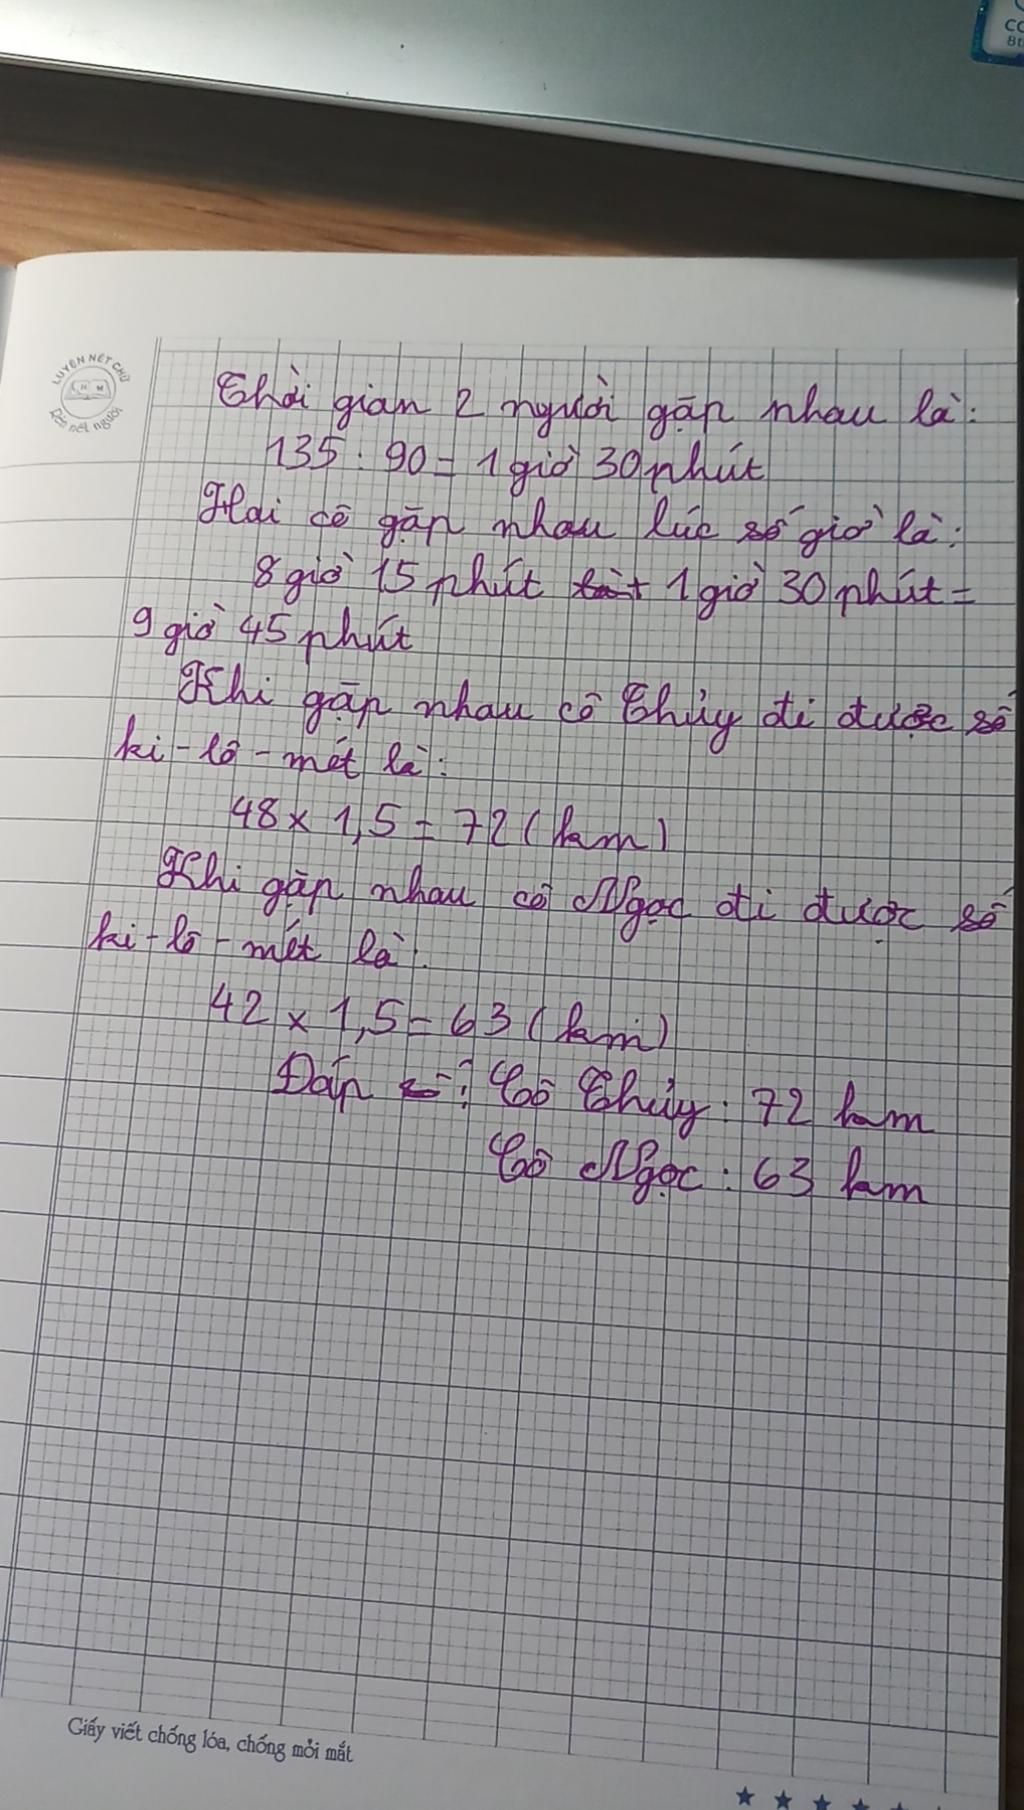 CO
8t
LUYỆN NÉT CHỮ
Rèn nết người
Thời gian 2 người gặp nhau là:
135 : 90 = 1 giờ 30 phút
Hai cô gặp nhau lúc số giờ là:
8 giờ 15 phút + 1 giờ 30 phút =
9 giờ 45 phút
Khi gặp nhau cô Thủy đi được số
ki-lô-mét là:
48 x 1,5 = 72 (km)
Khi gặp nhau cô Ngọc đi được số
ki-lô-mét là:
42 x 1,5 = 63 (km)
Đáp số: Cô Thủy: 72 km
Cô Ngọc: 63 km
Giấy viết chống lóa, chống mỏi mắt